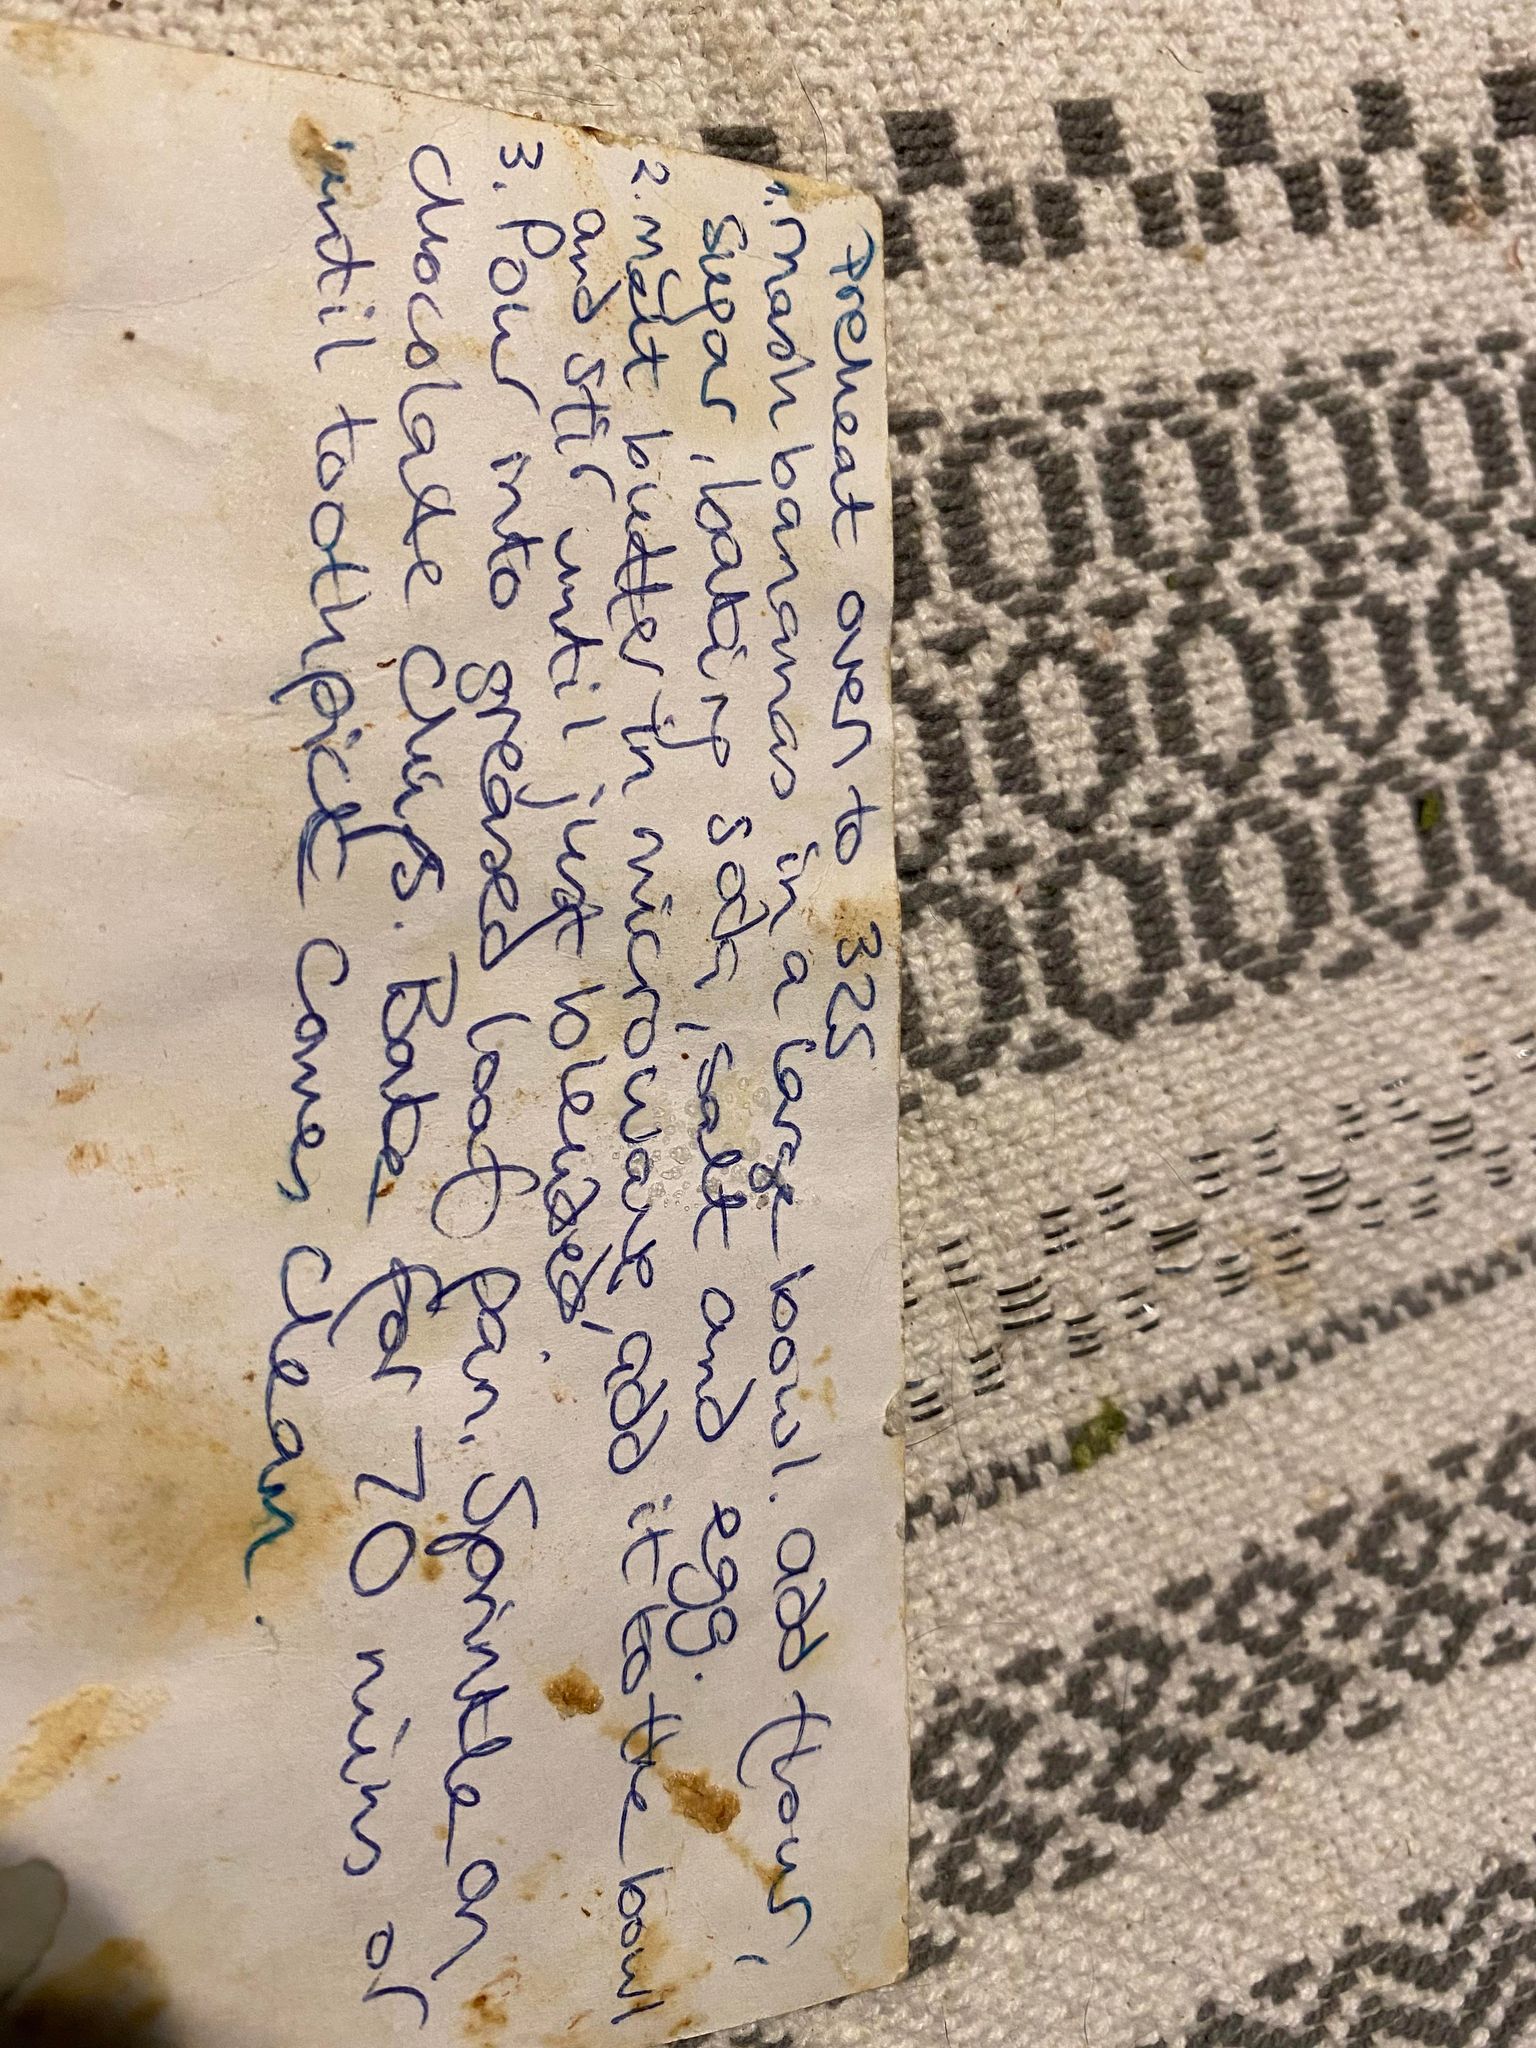 Preheat oven to 325
1. mash bananas in a large bowl. add flour,
sugar, baking soda, salt and egg.
2. melt butter in microwave, add it to the bowl
and stir until just blended.
3. Pour into greased loaf pan. Sprinkle on
chocolate chips. Bake for 70 mins or
until toothpick comes clean.